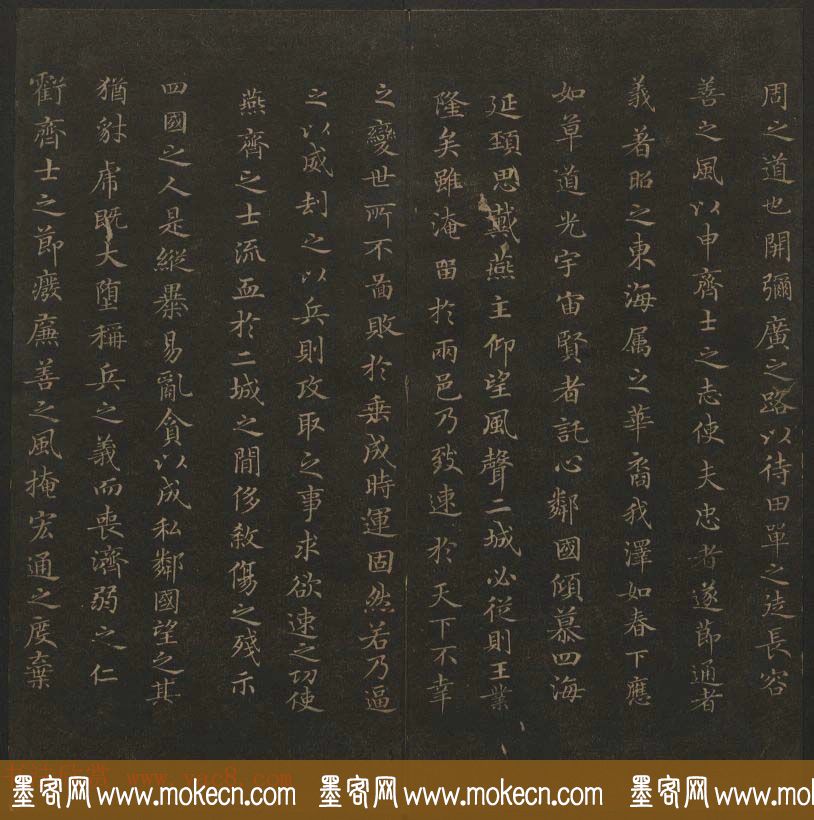 周之道也開彌廣之路以待田單之徒長容
善之風以申齊士之志使夫忠者遂節通者
義著昭之東海属之華裔我澤如春下應
如草道光宇宙賢者託心鄰國傾慕四海
延頚思戴燕主仰望風聲二城必從則王業
隆矣雖淹留於兩邑乃致速於天下不幸
之變世所不啚敗於垂成時運固然若乃逼
之以威刼之以兵則攻取之事求欲速之功使
燕齊之士流血於二城之閒侈敘傷之殘示
四國之人是縱暴易亂貪以成私鄰國望之其
猶豺虎既大堕稱兵之義而喪濟弱之仁
虧齊士之節癈廉善之風掩宏通之度棄
www.yac8.com
墨客网 www.mokecn.com 墨客网 www.mokecn.com 墨客网 www.mo